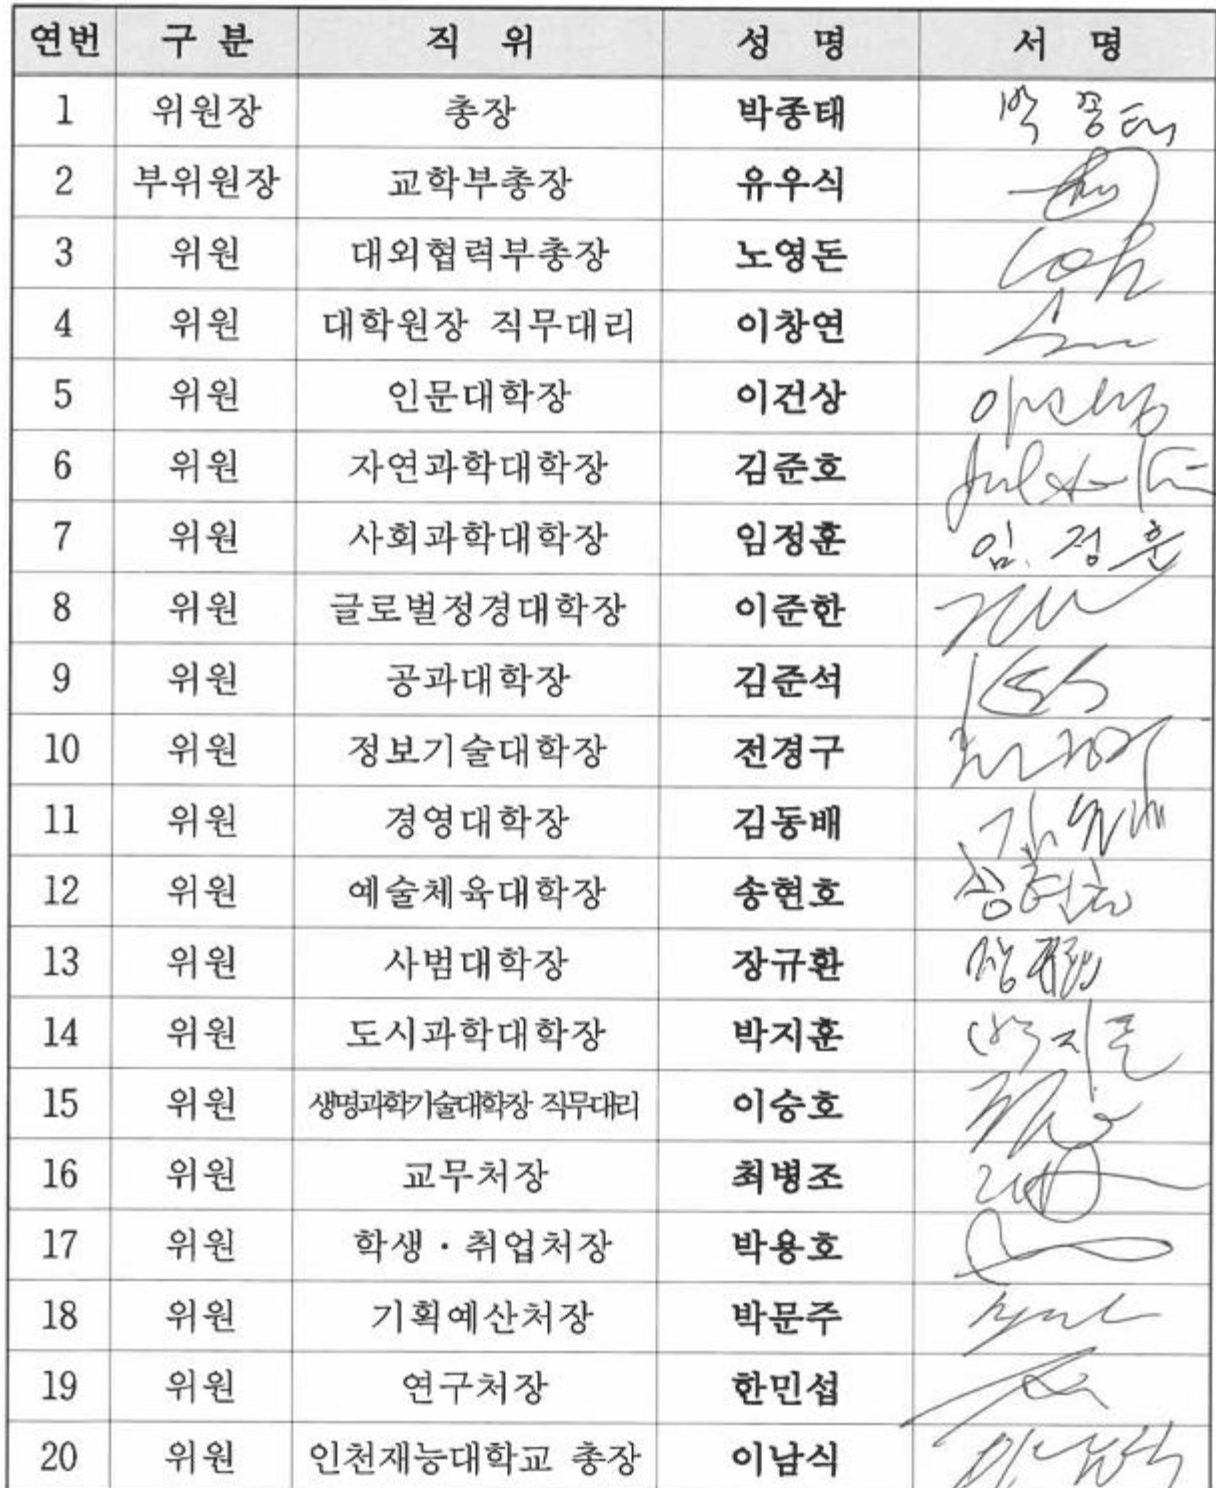 연번 구 분 직 위 성 명 서 명
1 위원장 총장 박종태 박 종 태
2 부위원장 교학부총장 유우식
3 위원 대외협력부총장 노영돈
4 위원 대학원장 직무대리 이창연
5 위원 인문대학장 이건상 이건상
6 위원 자연과학대학장 김준호
7 위원 사회과학대학장 임정훈 임. 정 훈
8 위원 글로벌정경대학장 이준한
9 위원 공과대학장 김준석
10 위원 정보기술대학장 전경구
11 위원 경영대학장 김동배
12 위원 예술체육대학장 송현호 송현호
13 위원 사범대학장 장규환
14 위원 도시과학대학장 박지훈 박지훈
15 위원 생명과학기술대학장 직무대리 이승호
16 위원 교무처장 최병조
17 위원 학생·취업처장 박용호
18 위원 기획예산처장 박문주
19 위원 연구처장 한민섭
20 위원 인천재능대학교 총장 이남식 이남식